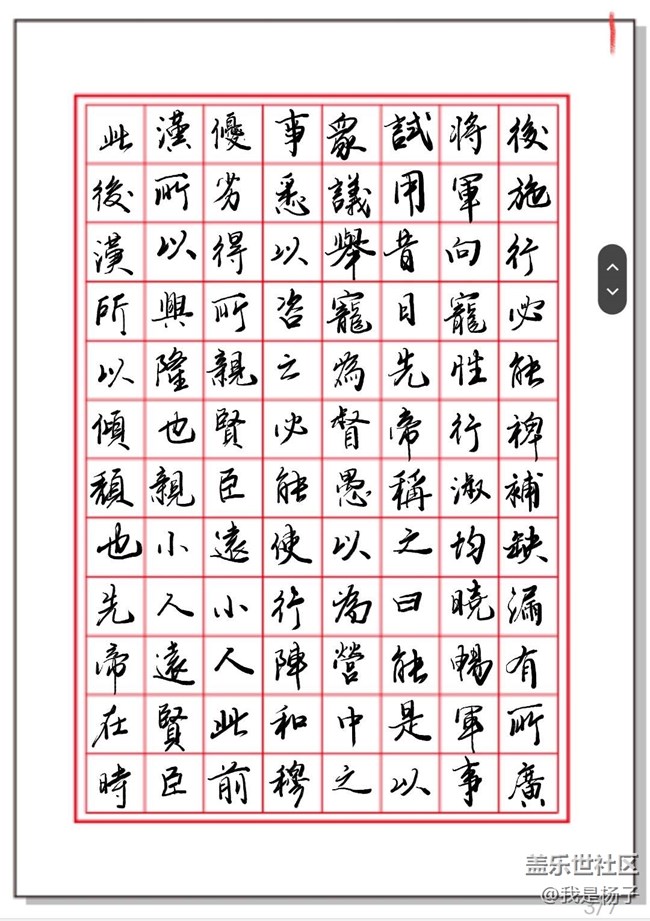 後施行必能裨補缺漏有所廣
將軍向寵性行淑均曉暢軍事
試用昔日先帝稱之曰能是以
眾議舉寵為督愚以為營中之
事悉以咨之必能使行陣和穆
優劣得所親賢臣遠小人此前
漢所以興隆也親小人遠賢臣
此後漢所以傾頹也先帝在時
盖乐世社区
@我是杨子
3/7